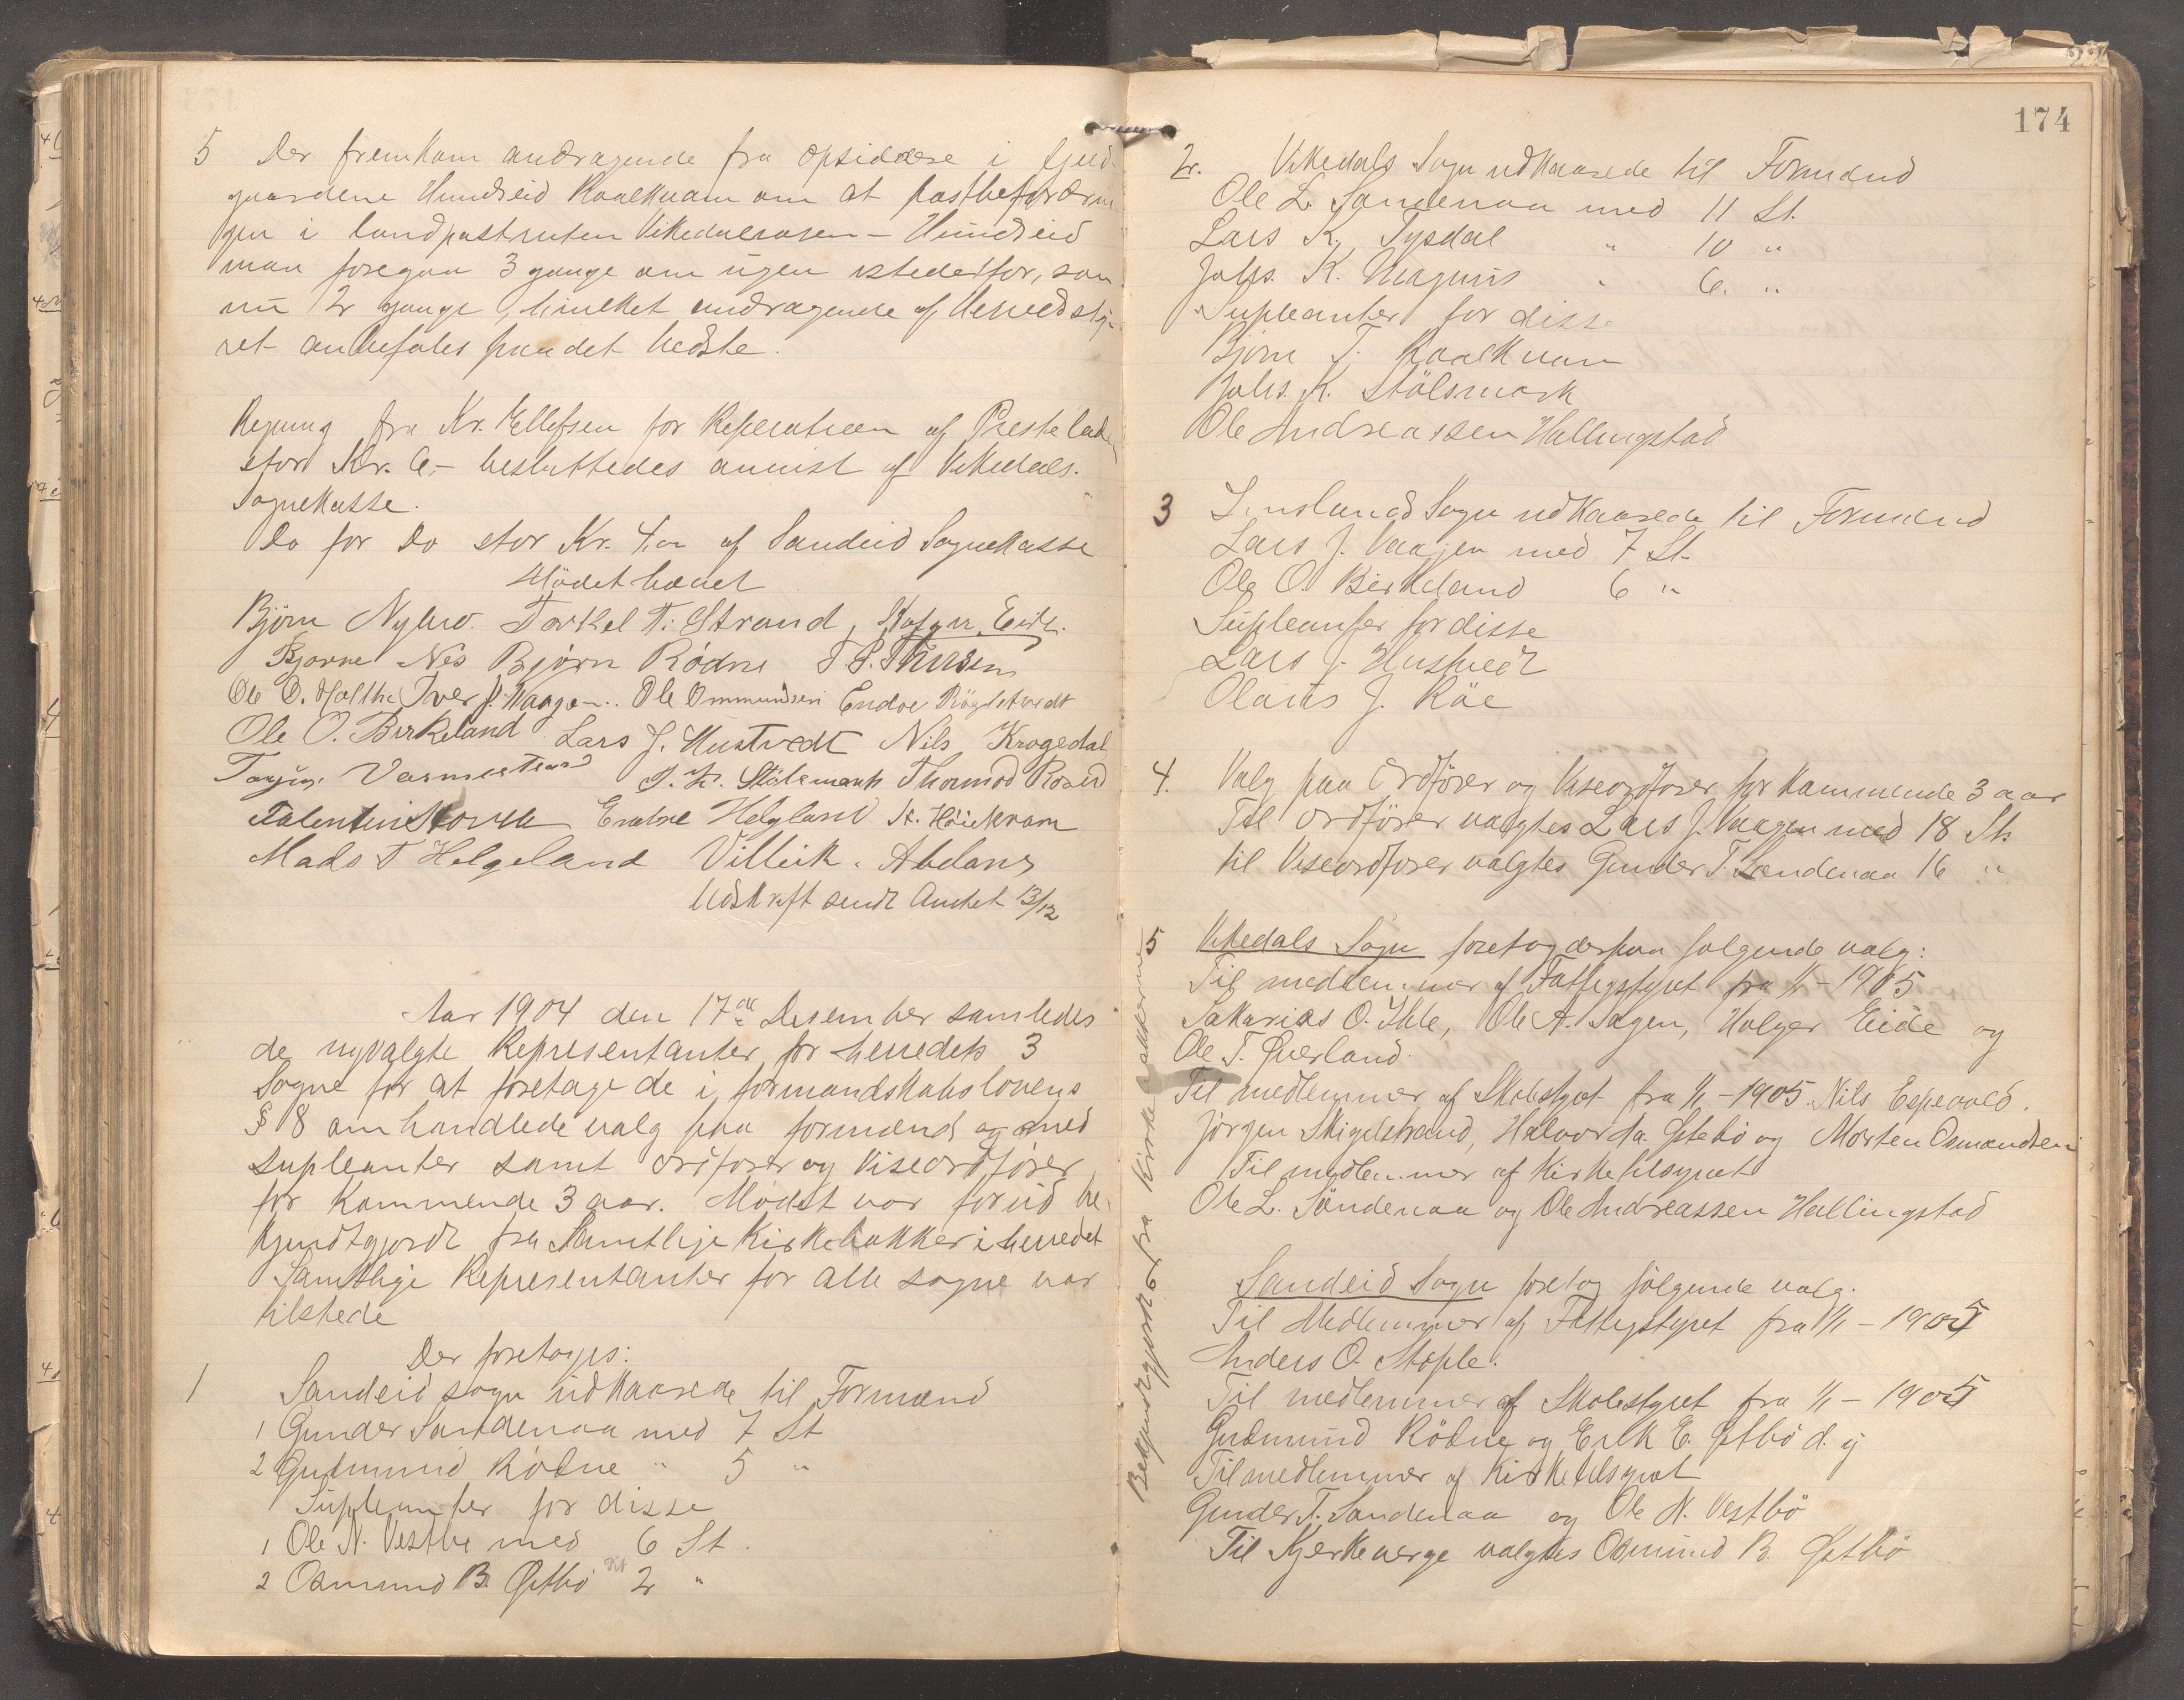 5 Der fremkom andragende fra opsiddere i
gaardene Hundseid Kaalkuam om at postbefordrin
gen i landpostruten Vikedalsosen - Hundseid
maa foregaa 3 gange om ugen istedetfor, som
nu 2 gange, hvilket andragende af Herredsty-
ret anbefales paa det bedste.
Regning fra Kr. Ellefsen for Reperation af Prestelade
stor Kr. 6,- besluttedes anvist af Vikedals.
Sognekasse.
Do for Do stor Kr. 4,00 af Sandeid Sognekasse
Mödet hævet
Björn Nylund. Torkel T. Strand,
Bjarne Nes Björn Rödne
Ole O. Iver J. Vaage Ole Ommundsen Endre
Ole O. Birkeland Lars J. Hustvedt Nils Krogedal
J. K. Stölsmark Thormod Roseid
Endre Helgland
Mads T Helgeland Villeik.
Udskrift sendt Amtet 13/12
Aar 1904 den 17de Desember samledes
de nyvalgte Representanter for herredets 3
Sogne for at foretage de i formandskabslovens
§ 8 omhandlede valg paa formænd og med
supleanter samt ordförer og Viseordförer
for Kommende 3 aar. Mödet var forud be-
kjendtgjordt fra Samtlige Kirkebakker i herredet
Samtlige Representanter for alle sogne var
tilstede
Der foretoges:
1 Sandeid sogn udkaarede til Formænd
1 Gunder Sandenaa med 7 St
2 Gudmund Rödne " 5 "
Supleanter for disse
1 Ole N. Vestbö med 6 St.
2 Osmund B. Østbö 2 "
174
2. Vikedals Sogn udkaarede til Formænd
Ole L. Sandenaa med 11 St.
Lars K. Tysdal " 10 "
Johs. K. Magnus " 6. "
Supleanter for disse
Björn T. Kaalkuam
Johs. K. Stölsmark
Ole Andreassen Hallingstad
3 Imslands Sogn udkaarede til Formænd
Lars J. Vaagen med 7 St.
Ole O. Birkeland 6 "
Supleanter for disse
Lars J. Hustvedt
Olaus J. Röe
4. Valg paa Ordförer og Viseordförer for Kommende 3 aar
Til ordförer valgtes Lars J. Vaagen med 18 St.
til Viseordförer valgtes Gunder T. Sandenaa 16 "
5 Vikedals Sogn foretog derpaa fölgende valg:
Til medlemmer af Fattigstyret fra 1/1 - 1905
Sakarias O. Ihle, Ole A. Sagen, Holger Eide og
Ole T. Øverland.
Til medlemmer af Skolestyret fra 1/1 - 1905. Nils Espevold.
Jörgen Skigelstrand, Halvor Østebö og Morten Osmundsen
Til medlemmer af Kirketilsynet
Ole L. Söndenaa og Ole Andreassen Hallingstad
Bekjendtgjordt fra Kirkebakkerne
Sandeid Sogn foretog fölgende valg.
Til Medlemmer af Fattigstyret fra 1/1 - 1905
Anders O. Stople.
Til medlemmer af Skolestyret fra 1/1 - 1905
Gudmund Rödne og Erik E. Østbö d. y
Til medlemmer af Kirketilsynet
Gunder T. Sandenaa og Ole N. Vestbö
Til Kjerkeverge valgtes Osmund B. Østbö